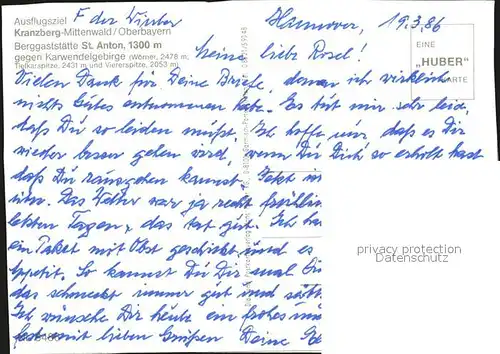 Ausflugsziel
Kranzberg-Mittenwald/Oberbayern
Berggaststätte St. Anton, 1300 m
gegen Karwendelgebirge (Wörner, 2478 m,
Tiefkarspitze, 2431 m und Viererspitze, 2053 m)
EINE
„HUBER"
KARTE
Hannover, 19.3.86
Meine liebe Rosel!
Vielen Dank für Deine Briefe, denen ich wirklich
nichts Gutes entnommen habe. Es tut mir sehr leid,
daß Du so leiden mußt. Ich hoffe nur, daß es Dir
wieder besser gehen wird, wenn Du Dich so erholt hast
daß Du rausgehen kannst. Jetzt
Das Wetter war ja recht frühlin
letzten Tagen, das tat gut. Ich ha
ein Paket mit Obst geschickt und es
ppetit. So kannst Du Dir mal
das schmeckt immer gut und
Ich wünsche Dir heute ein frohes
fest mit lieben Grüßen Deine
privacy protection
Datenschutz